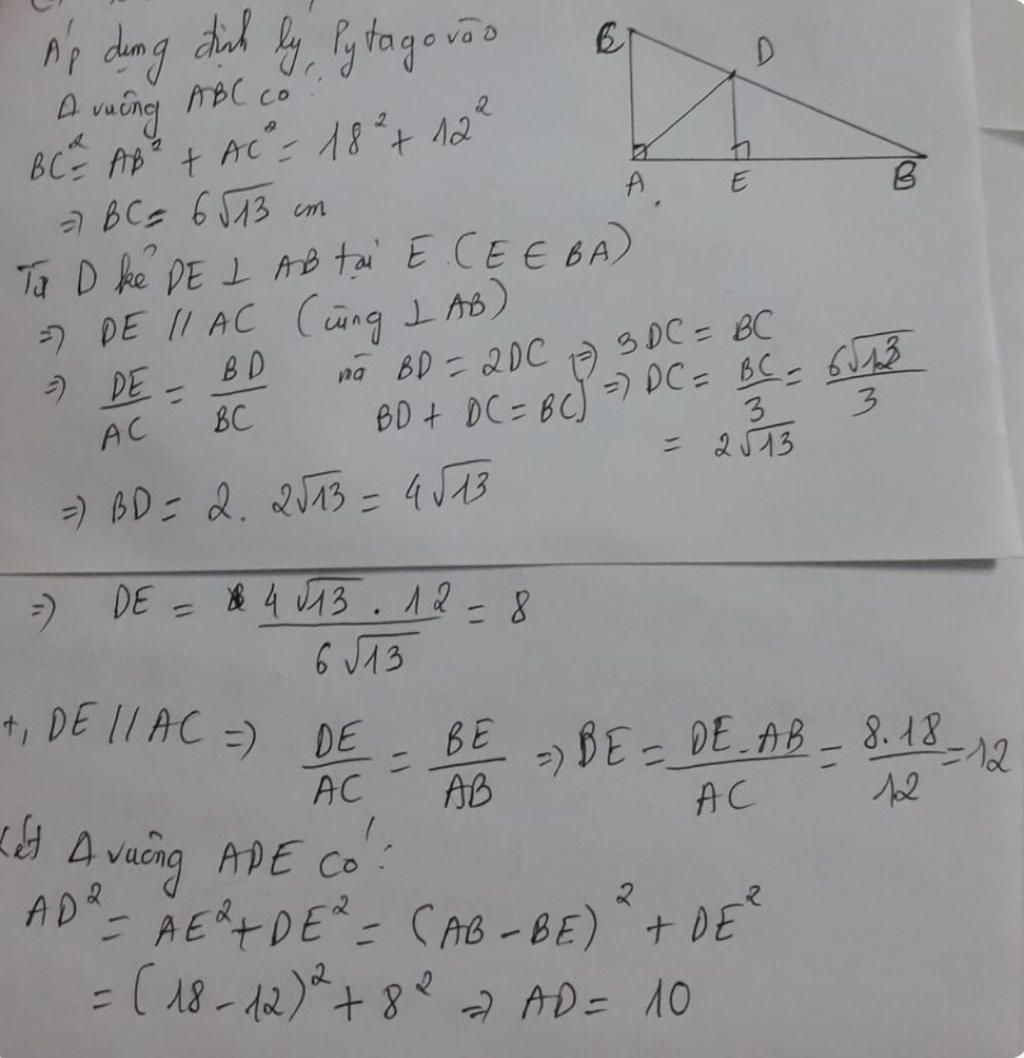 Áp dụng định lý Pytago vào
Δ vuông ABC có:
BC² = AB² + AC² = 18² + 12²
⇒ BC = 6√13 cm
Từ D kẻ DE ⊥ AB tại E (E ∈ BA)
⇒ DE // AC (cùng ⊥ AB)
⇒ DE/AC = BD/BC mà BD = 2DC ⇒ 3DC = BC
BD + DC = BC ⇒ DC = BC/3 = 6√13/3
= 2√13
⇒ BD = 2. 2√13 = 4√13
⇒ DE = 4√13 . 12 / 6√13 = 8
+, DE // AC ⇒ DE/AC = BE/AB ⇒ BE = DE.AB/AC = 8.18/12 = 12
Xét Δ vuông ADE có:
AD² = AE² + DE² = (AB - BE)² + DE²
= (18 - 12)² + 8² ⇒ AD = 10
D
A
E
B